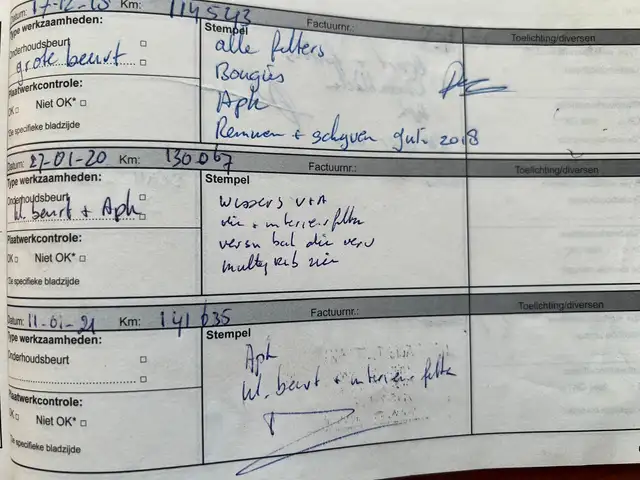 Datum: 17-12-18 Km: 114543 Factuurnr.: Toelichting/diversen
Type werkzaamheden: Stempel
Onderhoudsbeurt alle filters
grote beurt Bougies
Plaatwerkcontrole: Apk
OK Niet OK* Remmen + schyven 2018
De specifieke bladzijde
Datum: 27-01-20 Km: 130067 Factuurnr.: Toelichting/diversen
Type werkzaamheden: Stempel
Onderhoudsbeurt wissers V+A
kl. beurt + Apk + interieur filter
Plaatwerkcontrole:
OK Niet OK*
De specifieke bladzijde
Datum: 11-01-21 Km: 141635 Factuurnr.: Toelichting/diversen
Type werkzaamheden: Stempel
Onderhoudsbeurt Apk
kl. beurt + interieur filter
Plaatwerkcontrole:
OK Niet OK*
De specifieke bladzijde